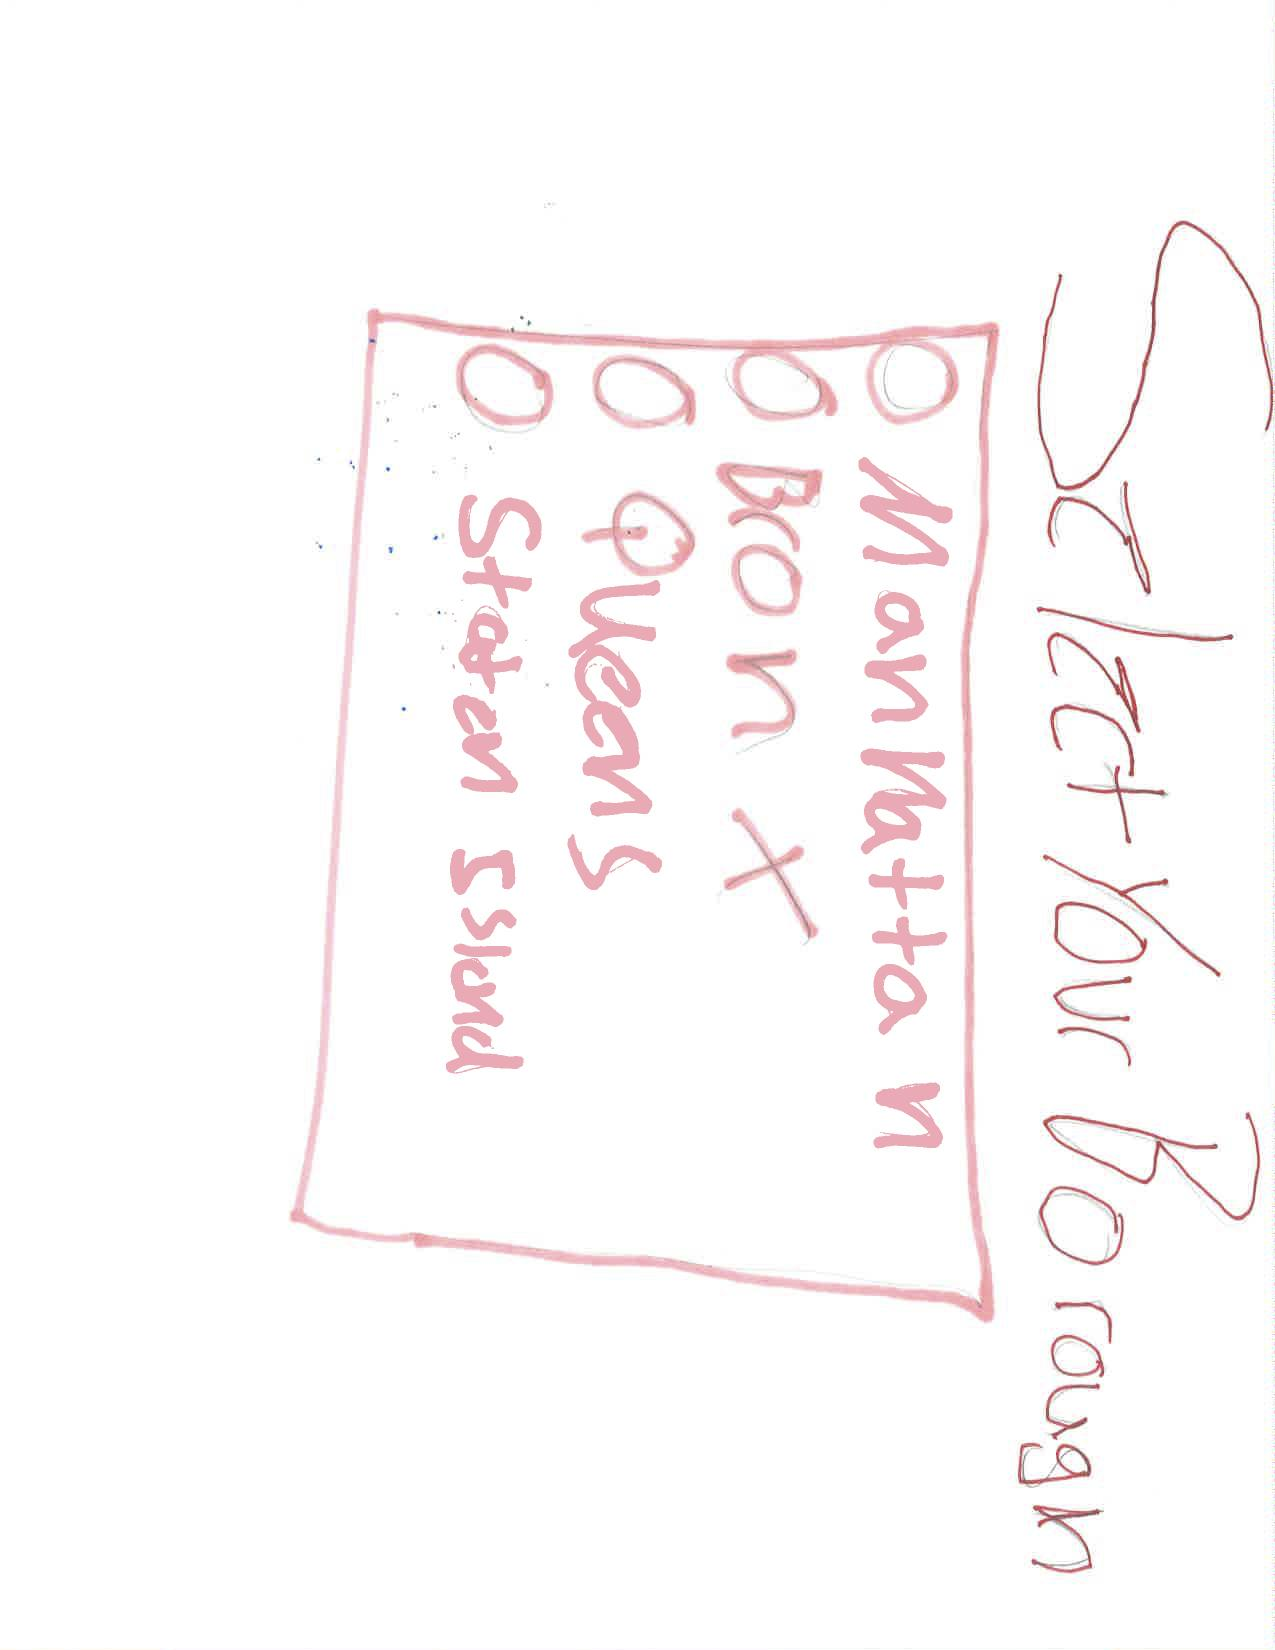 Select Your Borough
Manhattan
Bronx
Queens
Staten Island